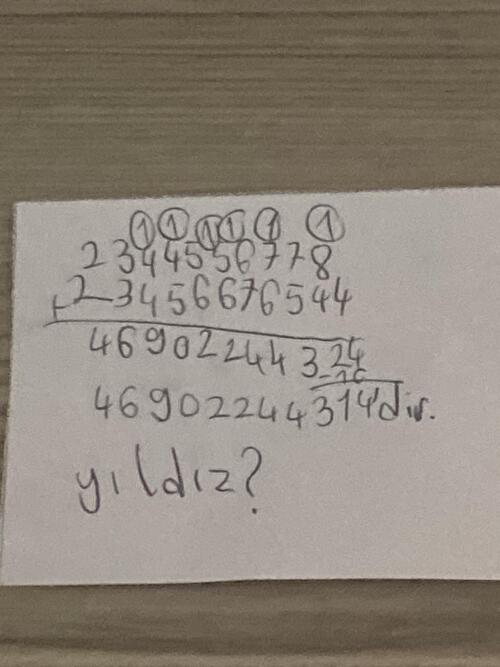 ① ① ① ① ① ①
2344556778
+ 23456676544
46902244324
- 10
46902244314'dir.
yıldız?